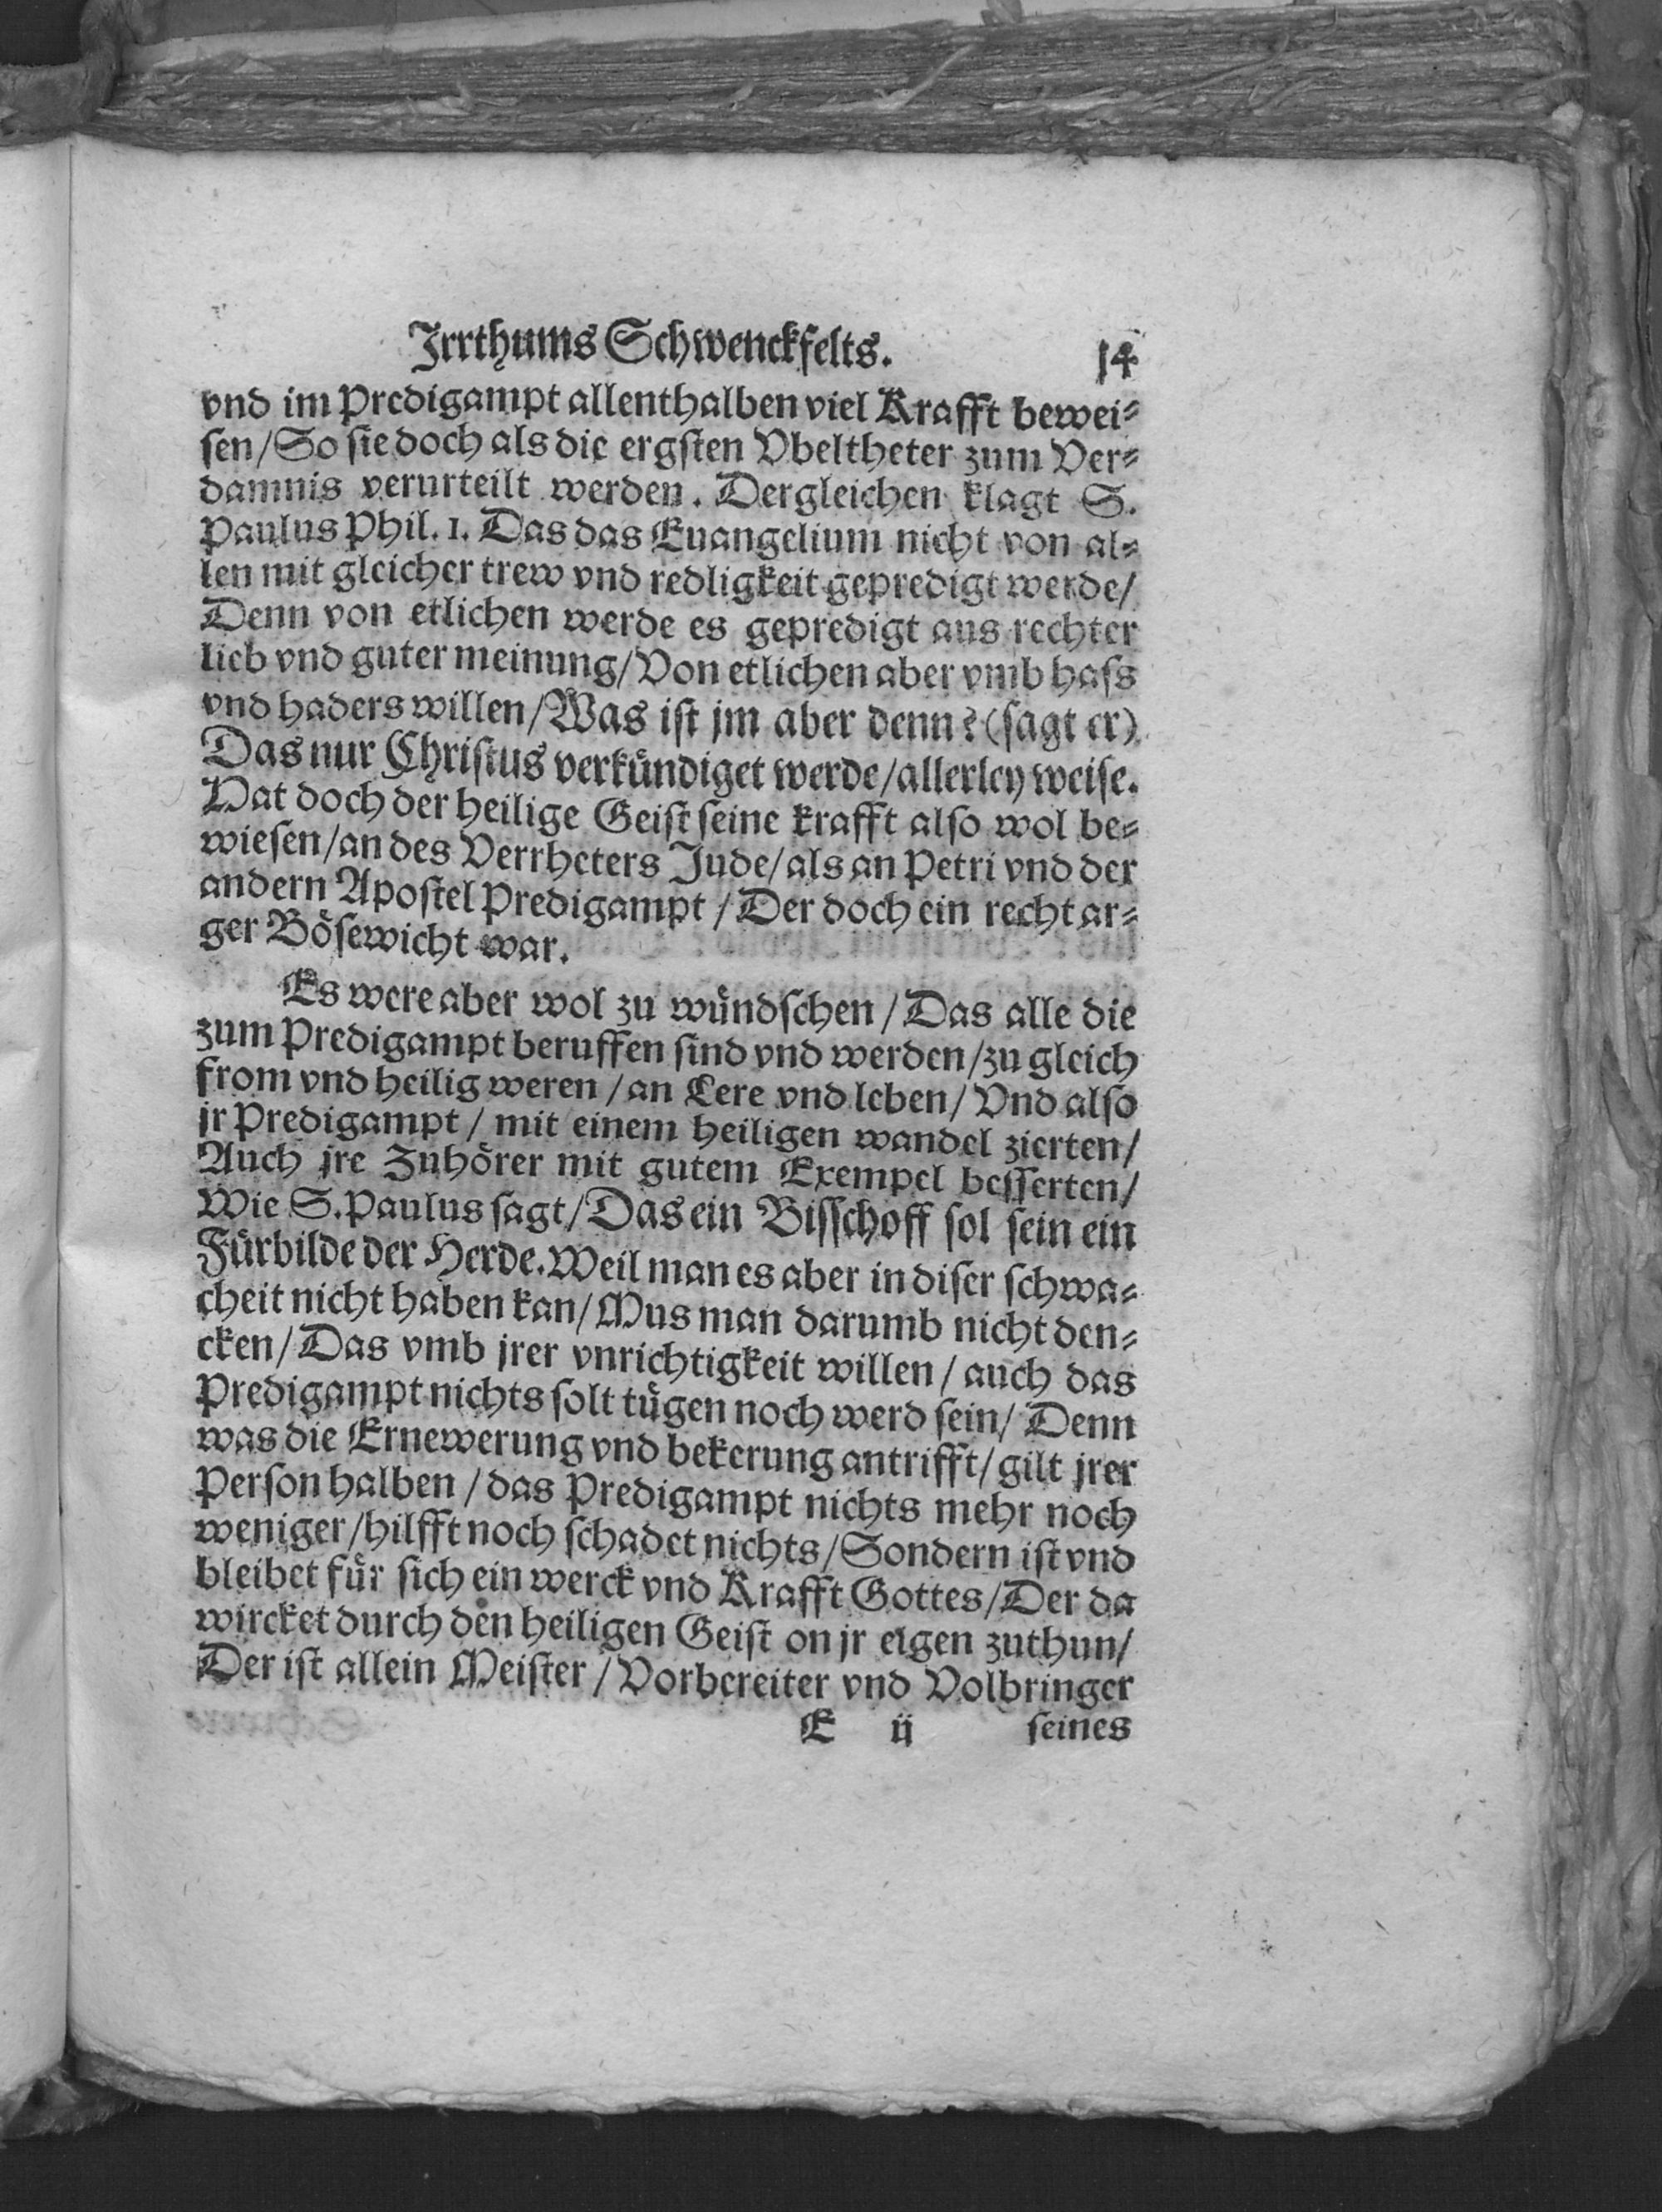 Jrrthums Schwenckfelts. 14
vnd im Predigampt allenthalben viel Krafft bewei⸗
ſen/So ſie doch als die ergſten Vbeltheter zum Ver⸗
damnis verurteilt werden. Dergleichen klagt S.
Paulus Phil. 1. Das das Euangelium nicht von al⸗
len mit gleicher trew vnd redligkeit gepredigt werde/
Denn von etlichen werde es gepredigt aus rechter
lieb vnd guter meinung/Von etlichen aber vmb haſs
vnd haders willen/Was iſt jm aber denn? (ſagt er)
Das nur Chriſtus verkuͤndiget werde/allerley weiſe.
Hat doch der heilige Geiſt ſeine krafft alſo wol be⸗
wieſen/an des Verrheters Jude/als an Petri vnd der
andern Apoſtel Predigampt/Der doch ein recht ar⸗
ger Boͤſewicht war.
Es were aber wol zu wuͤndſchen/Das alle die
zum Predigampt beruffen ſind vnd werden/zu gleich
from vnd heilig weren/an Lere vnd leben/Vnd alſo
jr Predigampt/mit einem heiligen wandel zierten/
Auch jre Zuhoͤrer mit gutem Exempel beſſerten/
Wie S. Paulus ſagt/Das ein Biſſchoff ſol ſein ein
Fuͤrbilde der Herde. Weil man es aber in diſer ſchwa⸗
cheit nicht haben kan/Mus man darumb nicht den⸗
cken/Das vmb jrer vnrichtigkeit willen/auch das
Predigampt nichts ſolt tuͤgen noch werd ſein/Denn
was die Ernewerung vnd bekerung antrifft/gilt jrer
Perſon halben/das Predigampt nichts mehr noch
weniger/hilfft noch ſchadet nichts/Sondern iſt vnd
bleibet fuͤr ſich ein werck vnd Krafft Gottes/Der da
wircket durch den heiligen Geiſt on jr eigen zuthun/
Der iſt allein Meiſter/Vorbereiter vnd Volbringer
E ij ſeines